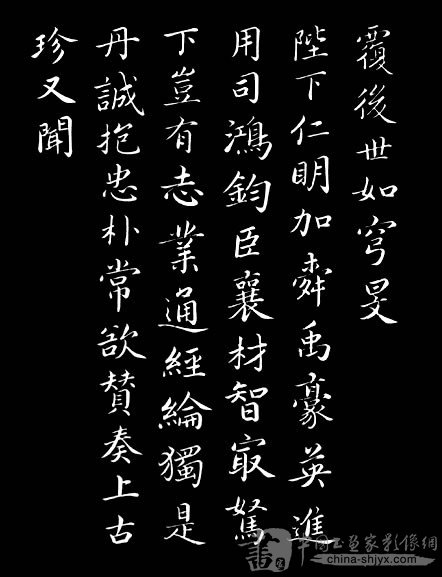 覆後世如穹旻
陛下仁明加舜禹豪英進
用司鴻鈞臣襄材智最駑
下豈有志業通經綸獨是
丹誠抱忠朴常欲賛奏上古
珍又聞
中国书画家影像網
china-shjyx.com